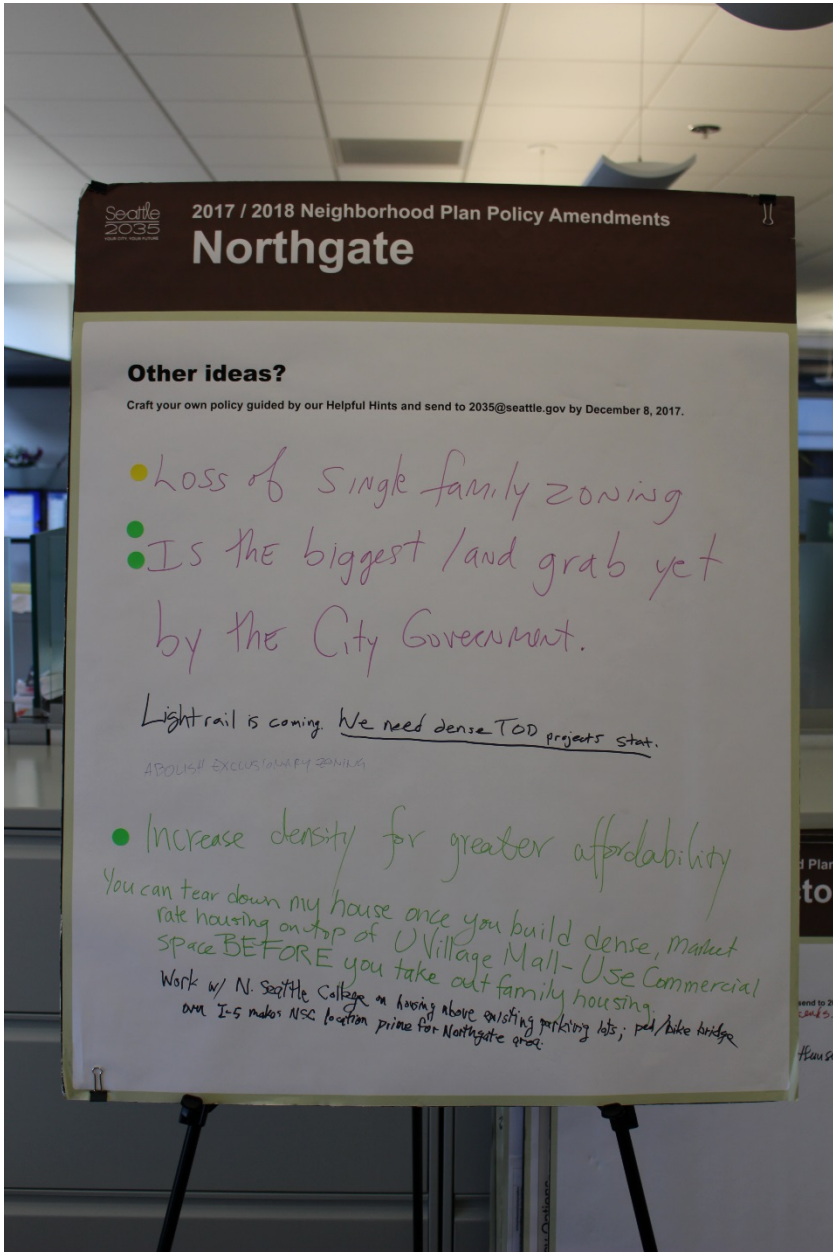 Seattle
2035
YOUR CITY, YOUR FUTURE
2017 / 2018 Neighborhood Plan Policy Amendments
Northgate
Other ideas?
Craft your own policy guided by our Helpful Hints and send to 2035@seattle.gov by December 8, 2017.
Loss of Single family zoning
Is the biggest land grab yet
by the City Government.
Light rail is coming. We need dense TOD projects stat.
ABOLISH EXCLUSIONARY ZONING
Increase density for greater affordability
You can tear down my house once you build dense, market
rate housing on top of U Village Mall - Use Commercial
space BEFORE you take out family housing.
Work w/ N. Seattle College on housing above existing parking lots; ped/bike bridge
over I-5 makes NSC location prime for Northgate area.
d Plan
to
send to 20